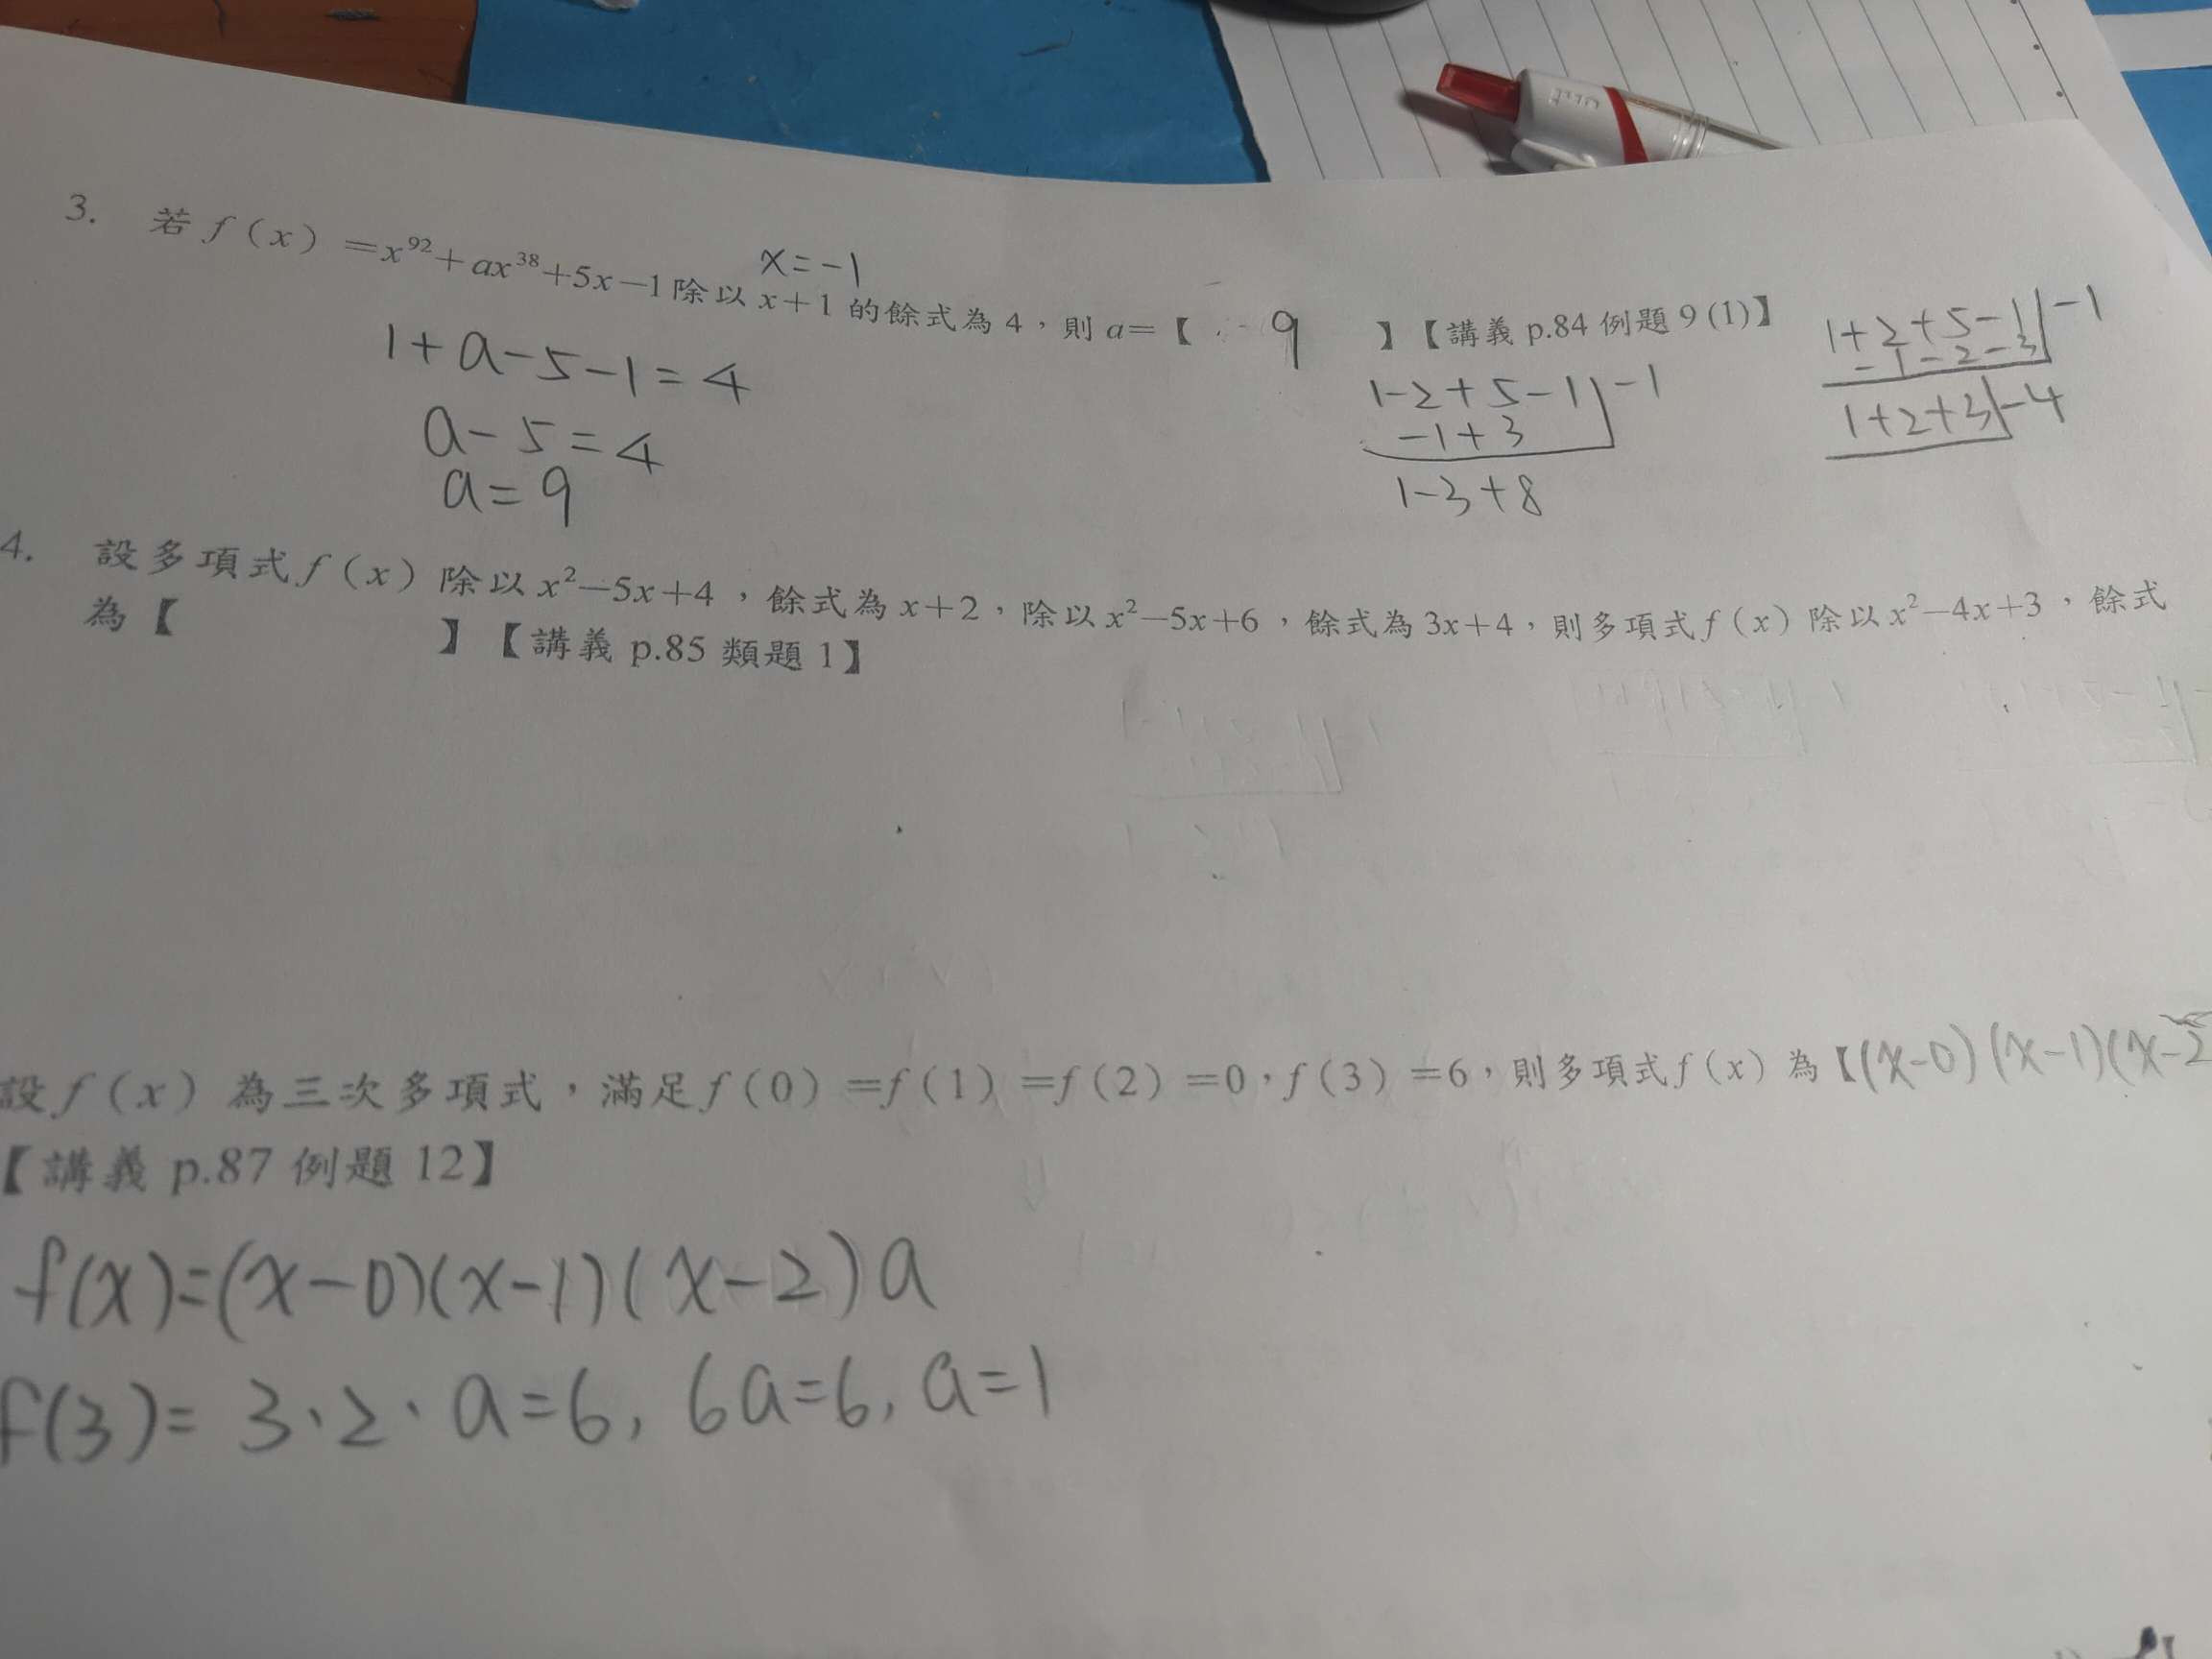 3. 若 f(x)=x^92+ax^38+5x-1 除以 x+1 的餘式為 4，則 a=【 9 】【講義 p.84 例題 9(1)】
x=-1
1+a-5-1=4
a-5=4
a=9
1-2+5-1 -1
-1+3
1-3+8
1+2+5-1 -1
-1-2-3
1+2+3-4
4. 設多項式 f(x) 除以 x²-5x+4，餘式為 x+2，除以 x²-5x+6，餘式為 3x+4，則多項式 f(x) 除以 x²-4x+3，餘式
為【 】【講義 p.85 類題 1】
設 f(x) 為三次多項式，滿足 f(0)=f(1)=f(2)=0，f(3)=6，則多項式 f(x) 為【(x-0)(x-1)(x-2
【講義 p.87 例題 12】
f(x)=(x-0)(x-1)(x-2)a
f(3)=3·2·a=6, 6a=6, a=1